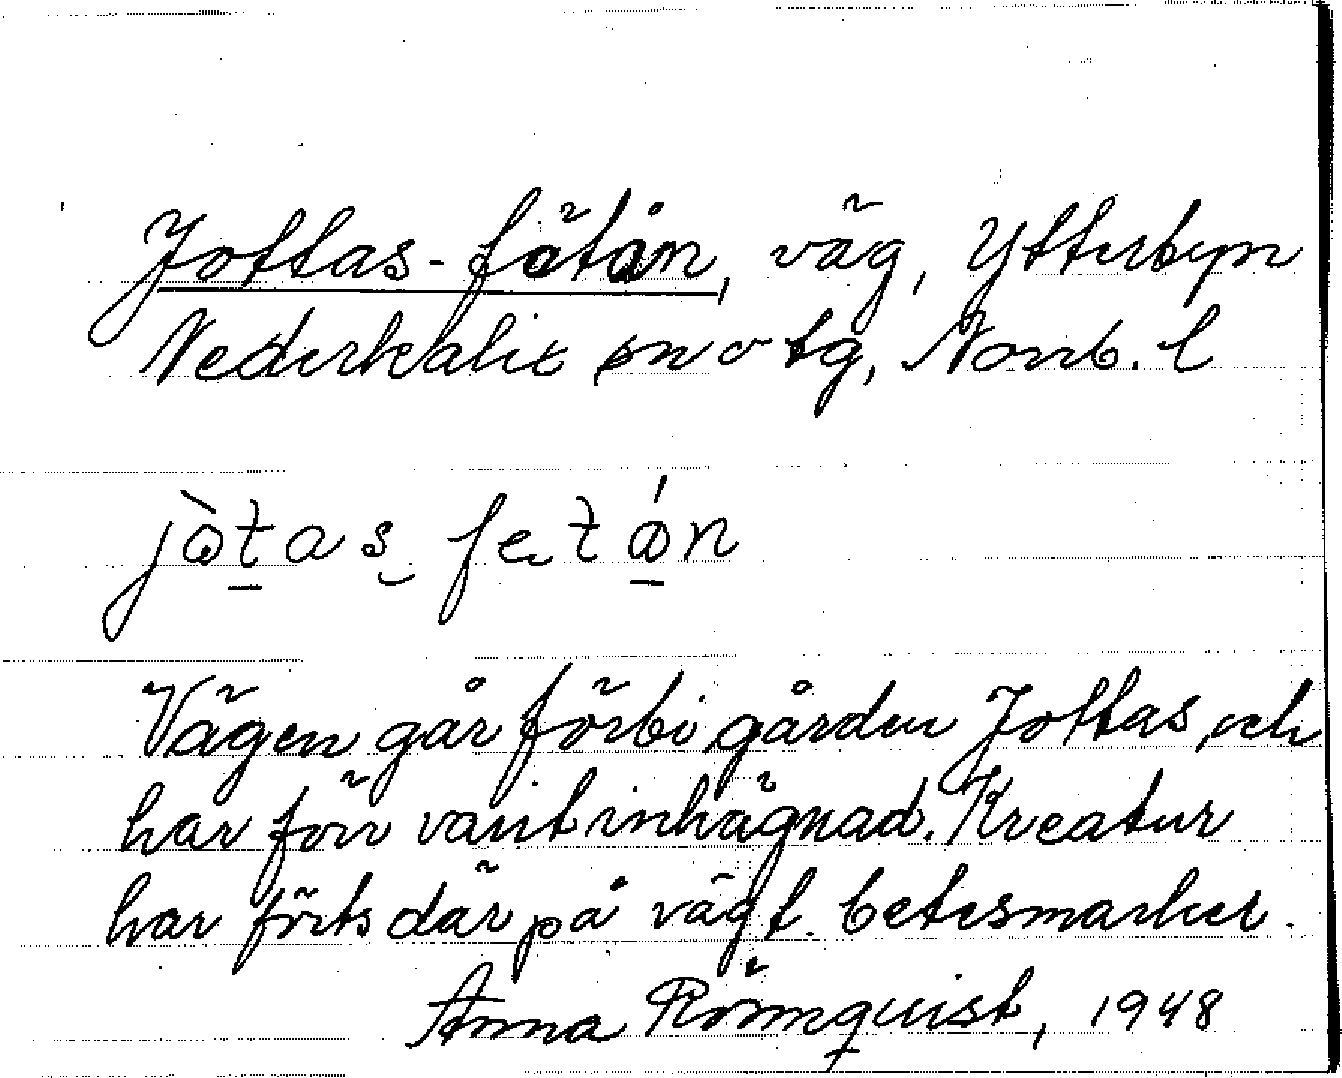 Jottas-fätån, väg, Ytterbyn
Nederkalix sn o tg, Norrb. l
jòtas fetån
Vägen går förbi gården Jottas, och
har förr varit inhägnad. Kreatur
har förts där på väg t. betesmarker.
Anna Rönnquist, 1948